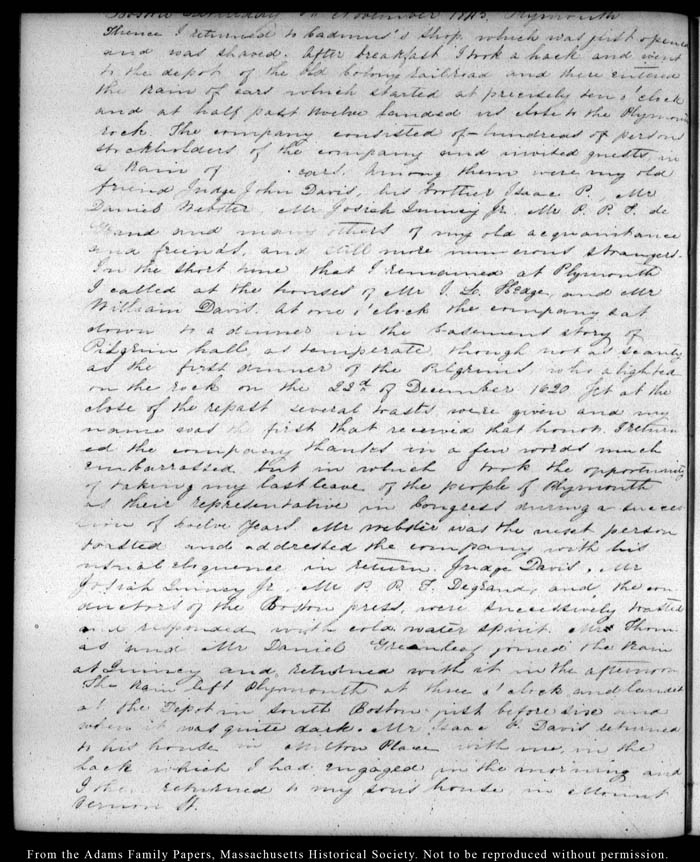 Boston Saturday November 1845. Plymouth
Thence I returned to Cadmus's shop, which was just opened
and was shaved. After breakfast I took a hack and went
to the depot of the Old Colony Railroad and there entered
the train of cars which started at precisely ten o'clock
and at half past twelve landed us close to the Plymouth
rock. The company consisted of hundreds of persons
stockholders of the company and invited guests, in
a train of cars. Among them were my old
friend Judge John Davis, his brother Isaac P., Mr
Daniel Webster, Mr Josiah Quincy Jr. Mr P. P. F. de
Grand and many others of my old acquaintance
and friends, and still more numerous strangers.
In the short time that I remained at Plymouth
I called at the houses of Mr I. L. Hedge, and Mr
William Davis. At one o'clock the company sat
down to a dinner in the basement story of
Pilgrim hall, as temperate, though not as scanty
as the first dinner of the Pilgrims, who alighted
on the rock on the 22d of December 1620 Yet at the
close of the repast, several toasts were given and my
name was the first that received that honor. I return
ed the company thanks in a few words much
embarrassed, but in which I took the opportunity
of taking my last leave of the people of Plymouth
as their representative in Congress during a succes
sion of twelve years. Mr Webster was the next person
toasted and addressed the company with his
usual eloquence in return. Judge Davis, Mr
Josiah Quincy Jr., Mr P. P. F. Degrand, and the con
ductors of the Boston press, were successively toasted
and responded with cold water spirit. Mr Thom
as and Mr Daniel Greenleaf joined the train
at Quincy and returned with it in the afternoon
The train left Plymouth at three o'clock and landed
at the Depot in South Boston just before six and
when it was quite dark. Mr Isaac P. Davis returned
to his house in Milton Place with me, in the
hack which I had engaged in the morning and
I then returned to my son's house, in Mount
Vernon St.
From the Adams Family Papers, Massachusetts Historical Society. Not to be reproduced without permission.